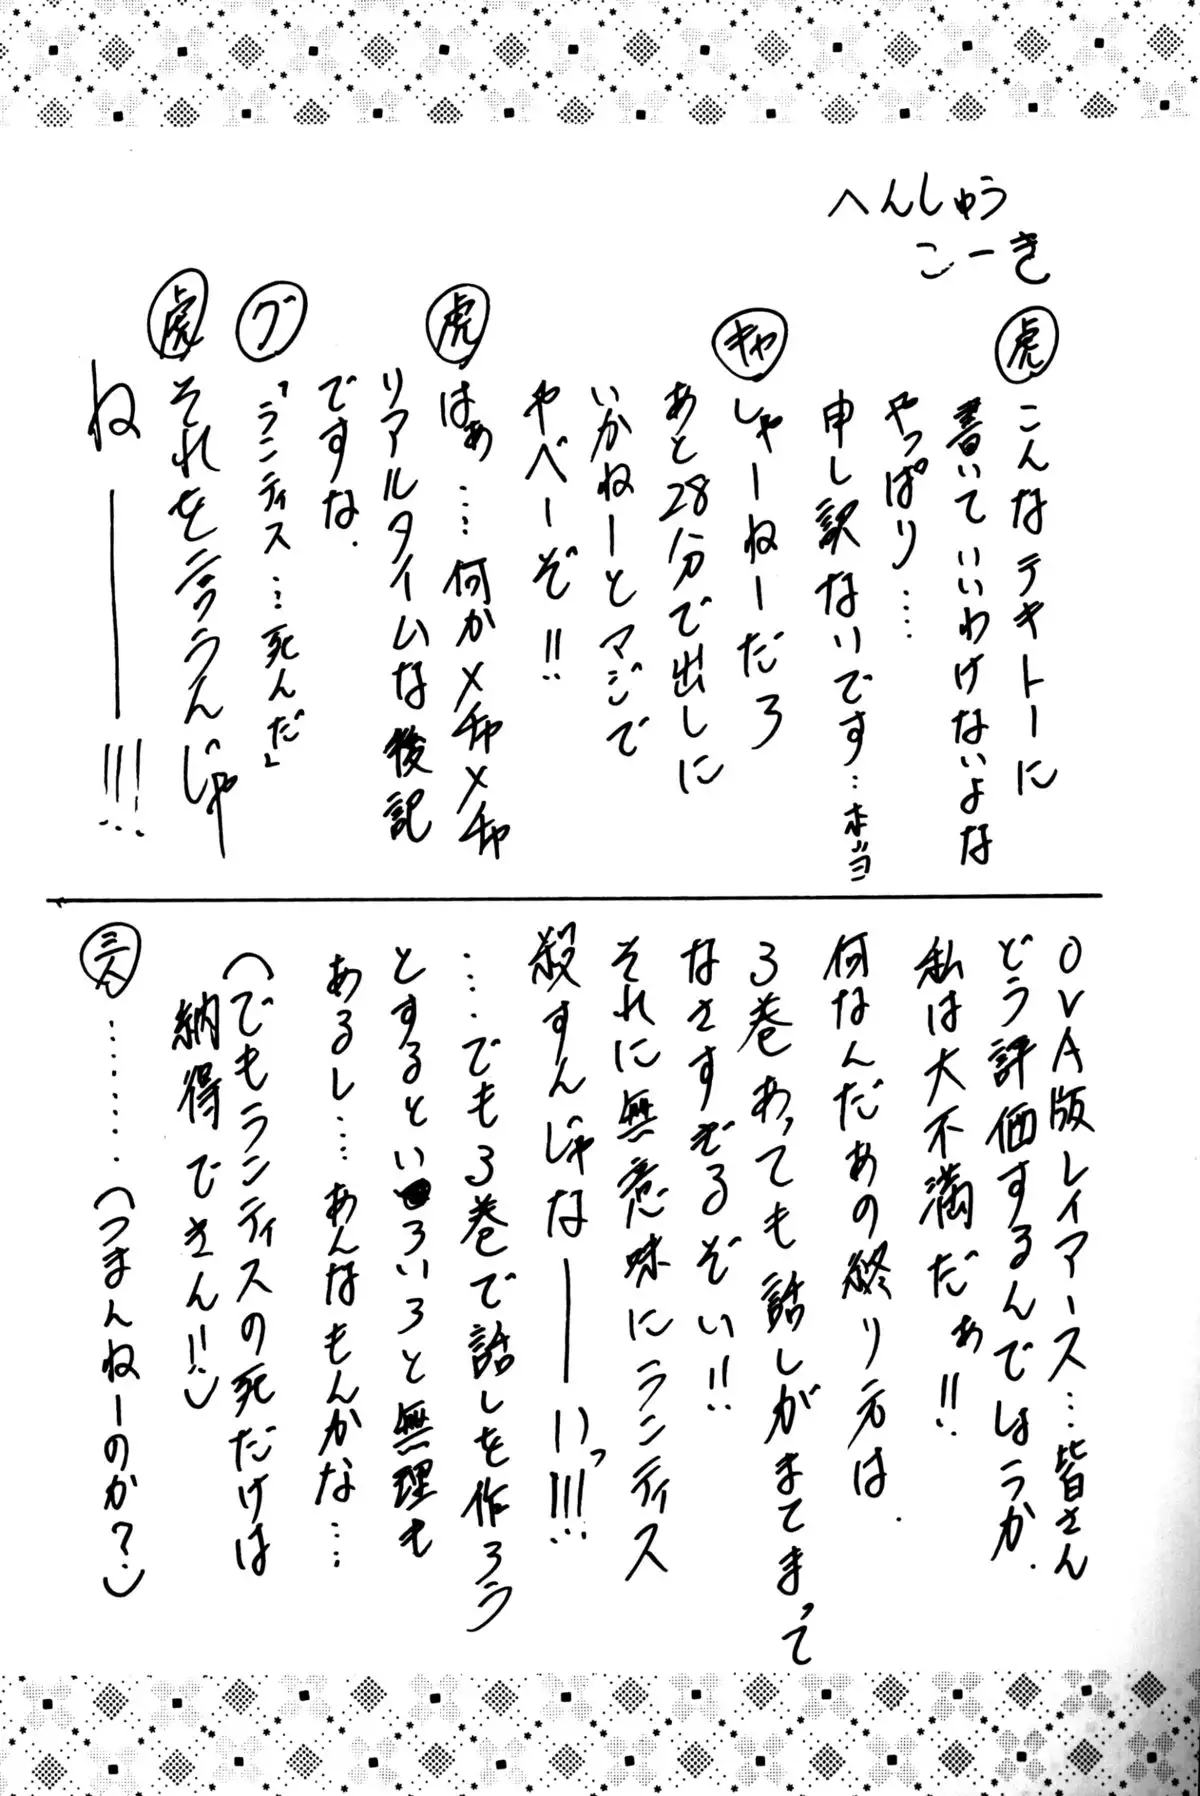 へんしゅう
こーき
虎 こんなテキトーに
書いていいわけないよな
やっぱり……
申し訳ないです…本当
キャ しゃーねーだろ
あと28分で出しに
いかねーとマジで
やべーぞ!!
虎 はぁ……何かメチャメチャ
リアルタイムな後記
ですな.
グ 「ランティス…死んだ」
虎 それを言うんじゃ
ね――!!!
OVA版レイアース…皆さん
どう評価するんでしょうか.
私は大不満だぁ!!
何なんだあの終り方は.
3巻あっても話しがまてまって
なさすぎるぞい!!
それに無意味にランティス
殺すんじゃな――いっ!!!
…でも3巻で話しを作ろう
とするといろいろと無理も
あるし…あんなもんかな…
(でもランティスの死だけは
納得できん!!)
三人 ………(つまんねーのか?)